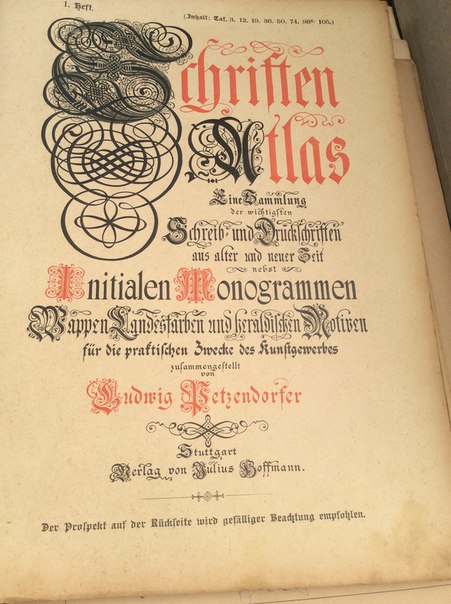 I. Heft.
(Inhalt: Taf. 3. 12. 19. 38. 50. 74. 98ᵃ. 105.)
Schriften
Atlas
Eine Sammlung
der wichtigsten
Schreib- und Druckschriften
aus alter und neuer Zeit
nebst
Initialen Monogrammen
Wappen Landesfarben und heraldischen Motiven
für die praktischen Zwecke des Kunstgewerbes
zusammengestellt
von
Ludwig Petzendorfer
Stuttgart
Verlag von Julius Hoffmann.
Der Prospekt auf der Rückseite wird gefälliger Beachtung empfohlen.